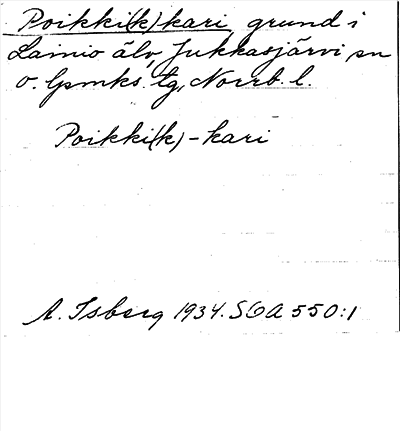 Poikki(k)kari, grund i
Lainio älv, Jukkasjärvi sn
o. lpmks. tg, Norrb. l.
Poikki(k)-kari
A. Isberg 1934. SOA 550:1